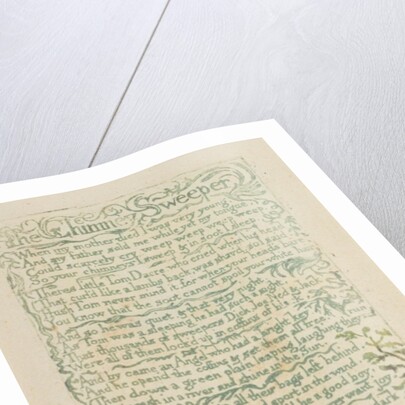 The Chimney Sweeper
When my mother died I was very young,
And my father sold me while yet my tongue
Could scarcely cry weep weep weep weep
So your chimneys I sweep & in soot I sleep.
Theres little Tom Dacre who cried when his head
That curl'd like a lambs back, was shav'd, so I said
Hush Tom never mind it, for when your head's bare
You know that the soot cannot spoil your white hair
And so he was quiet, & that very night,
As Tom was a sleeping he had such a sight
That thousands of sweepers Dick, Joe, Ned, & Jack
Were all of them lock'd up in coffins of black
And by came an Angel who had a bright key
And he open'd the coffins & set them all free
Then down a green plain leaping laughing they run
And wash in a river and shine in the
all their bags left behind
sport in the wind
a good boy